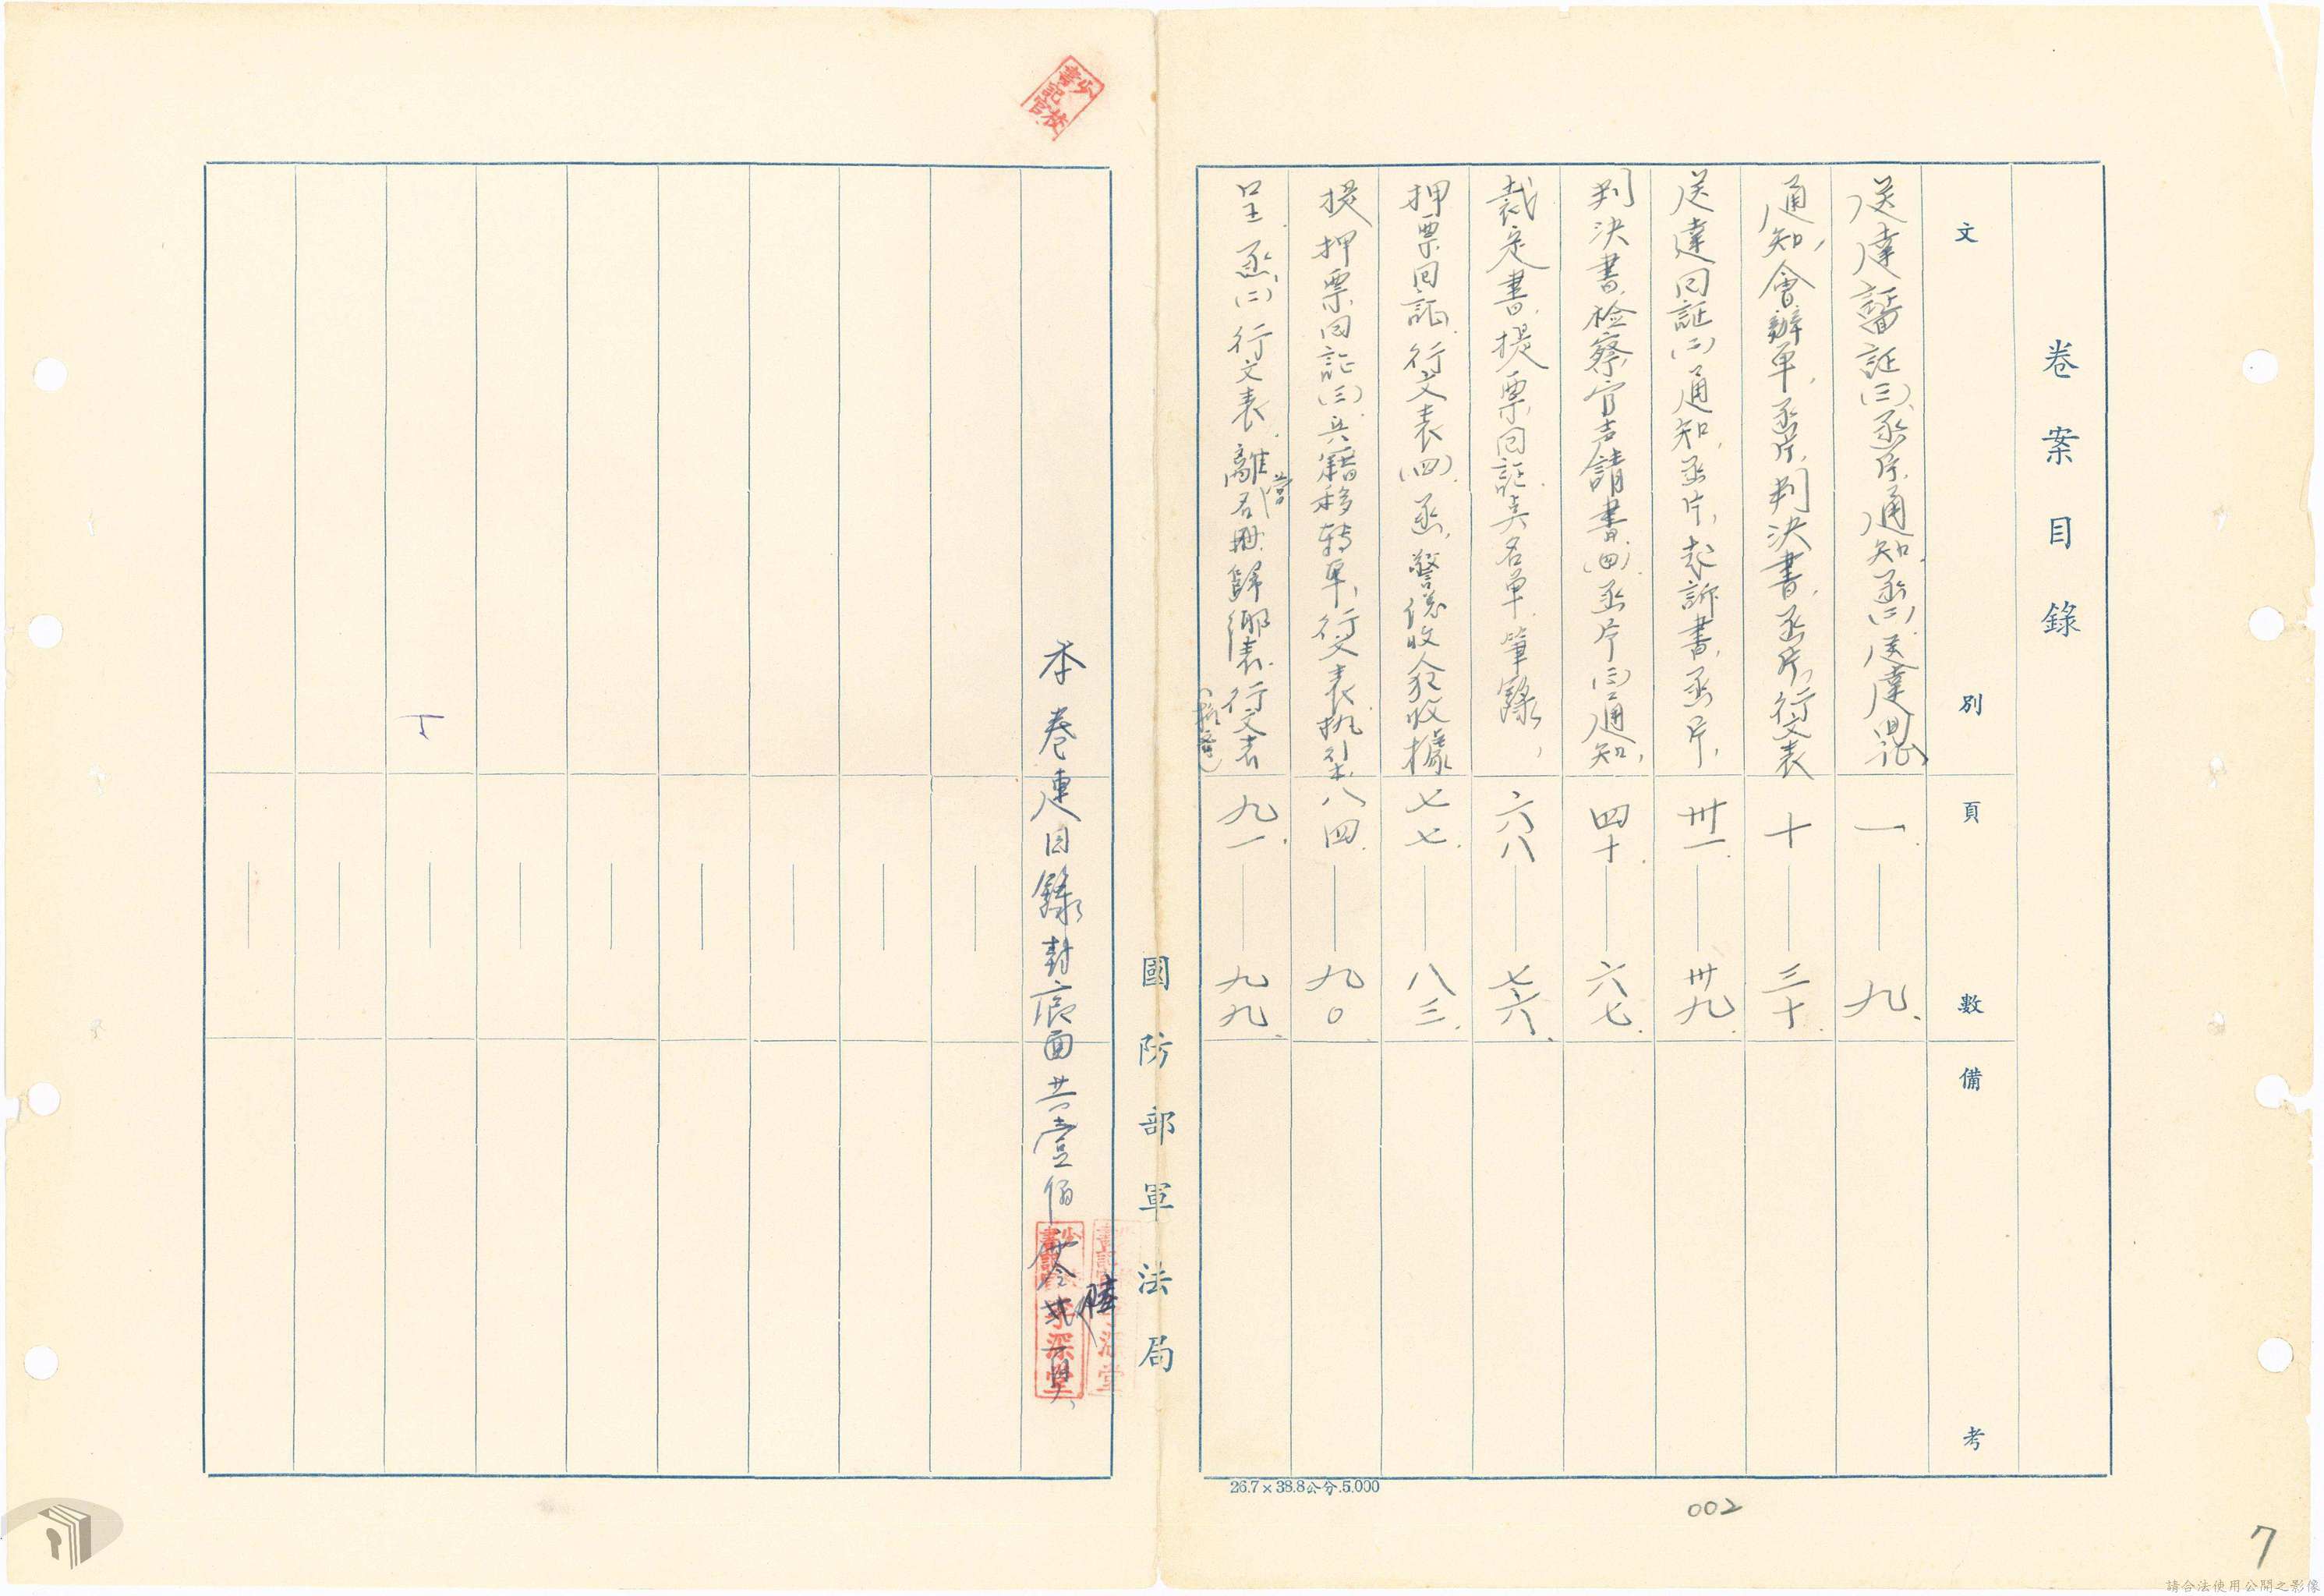 卷案目錄
文別
頁數
備考
送達證証(三)函片.通知.函(二).送達回証
一——九.
通知,會辦單.函片.判決書.函片,行文表
十——三十.
送達回証(二)通知.函片,起訴書.函片,
卅一.——卅九.
判決書.检察官声請書.(四)函片(三)通知,
四十.——六七.
裁定書.提票回証.名單.筆錄,
六八——七六.
押票回証.行文表(四).函.收据
七七.——八三.
提押票回証(三).兵籍移转单.行文表.执行
八四.——九〇
呈.函(二)行文表.離營名冊.歸鄉表.行文表
九一.——九九.
26.7×38.8公分.5.000
國防部軍法局
少校書記官
本卷連目錄封底面共壹佰零陸頁
深堂
丁
002
7
請合法使用公開之影像